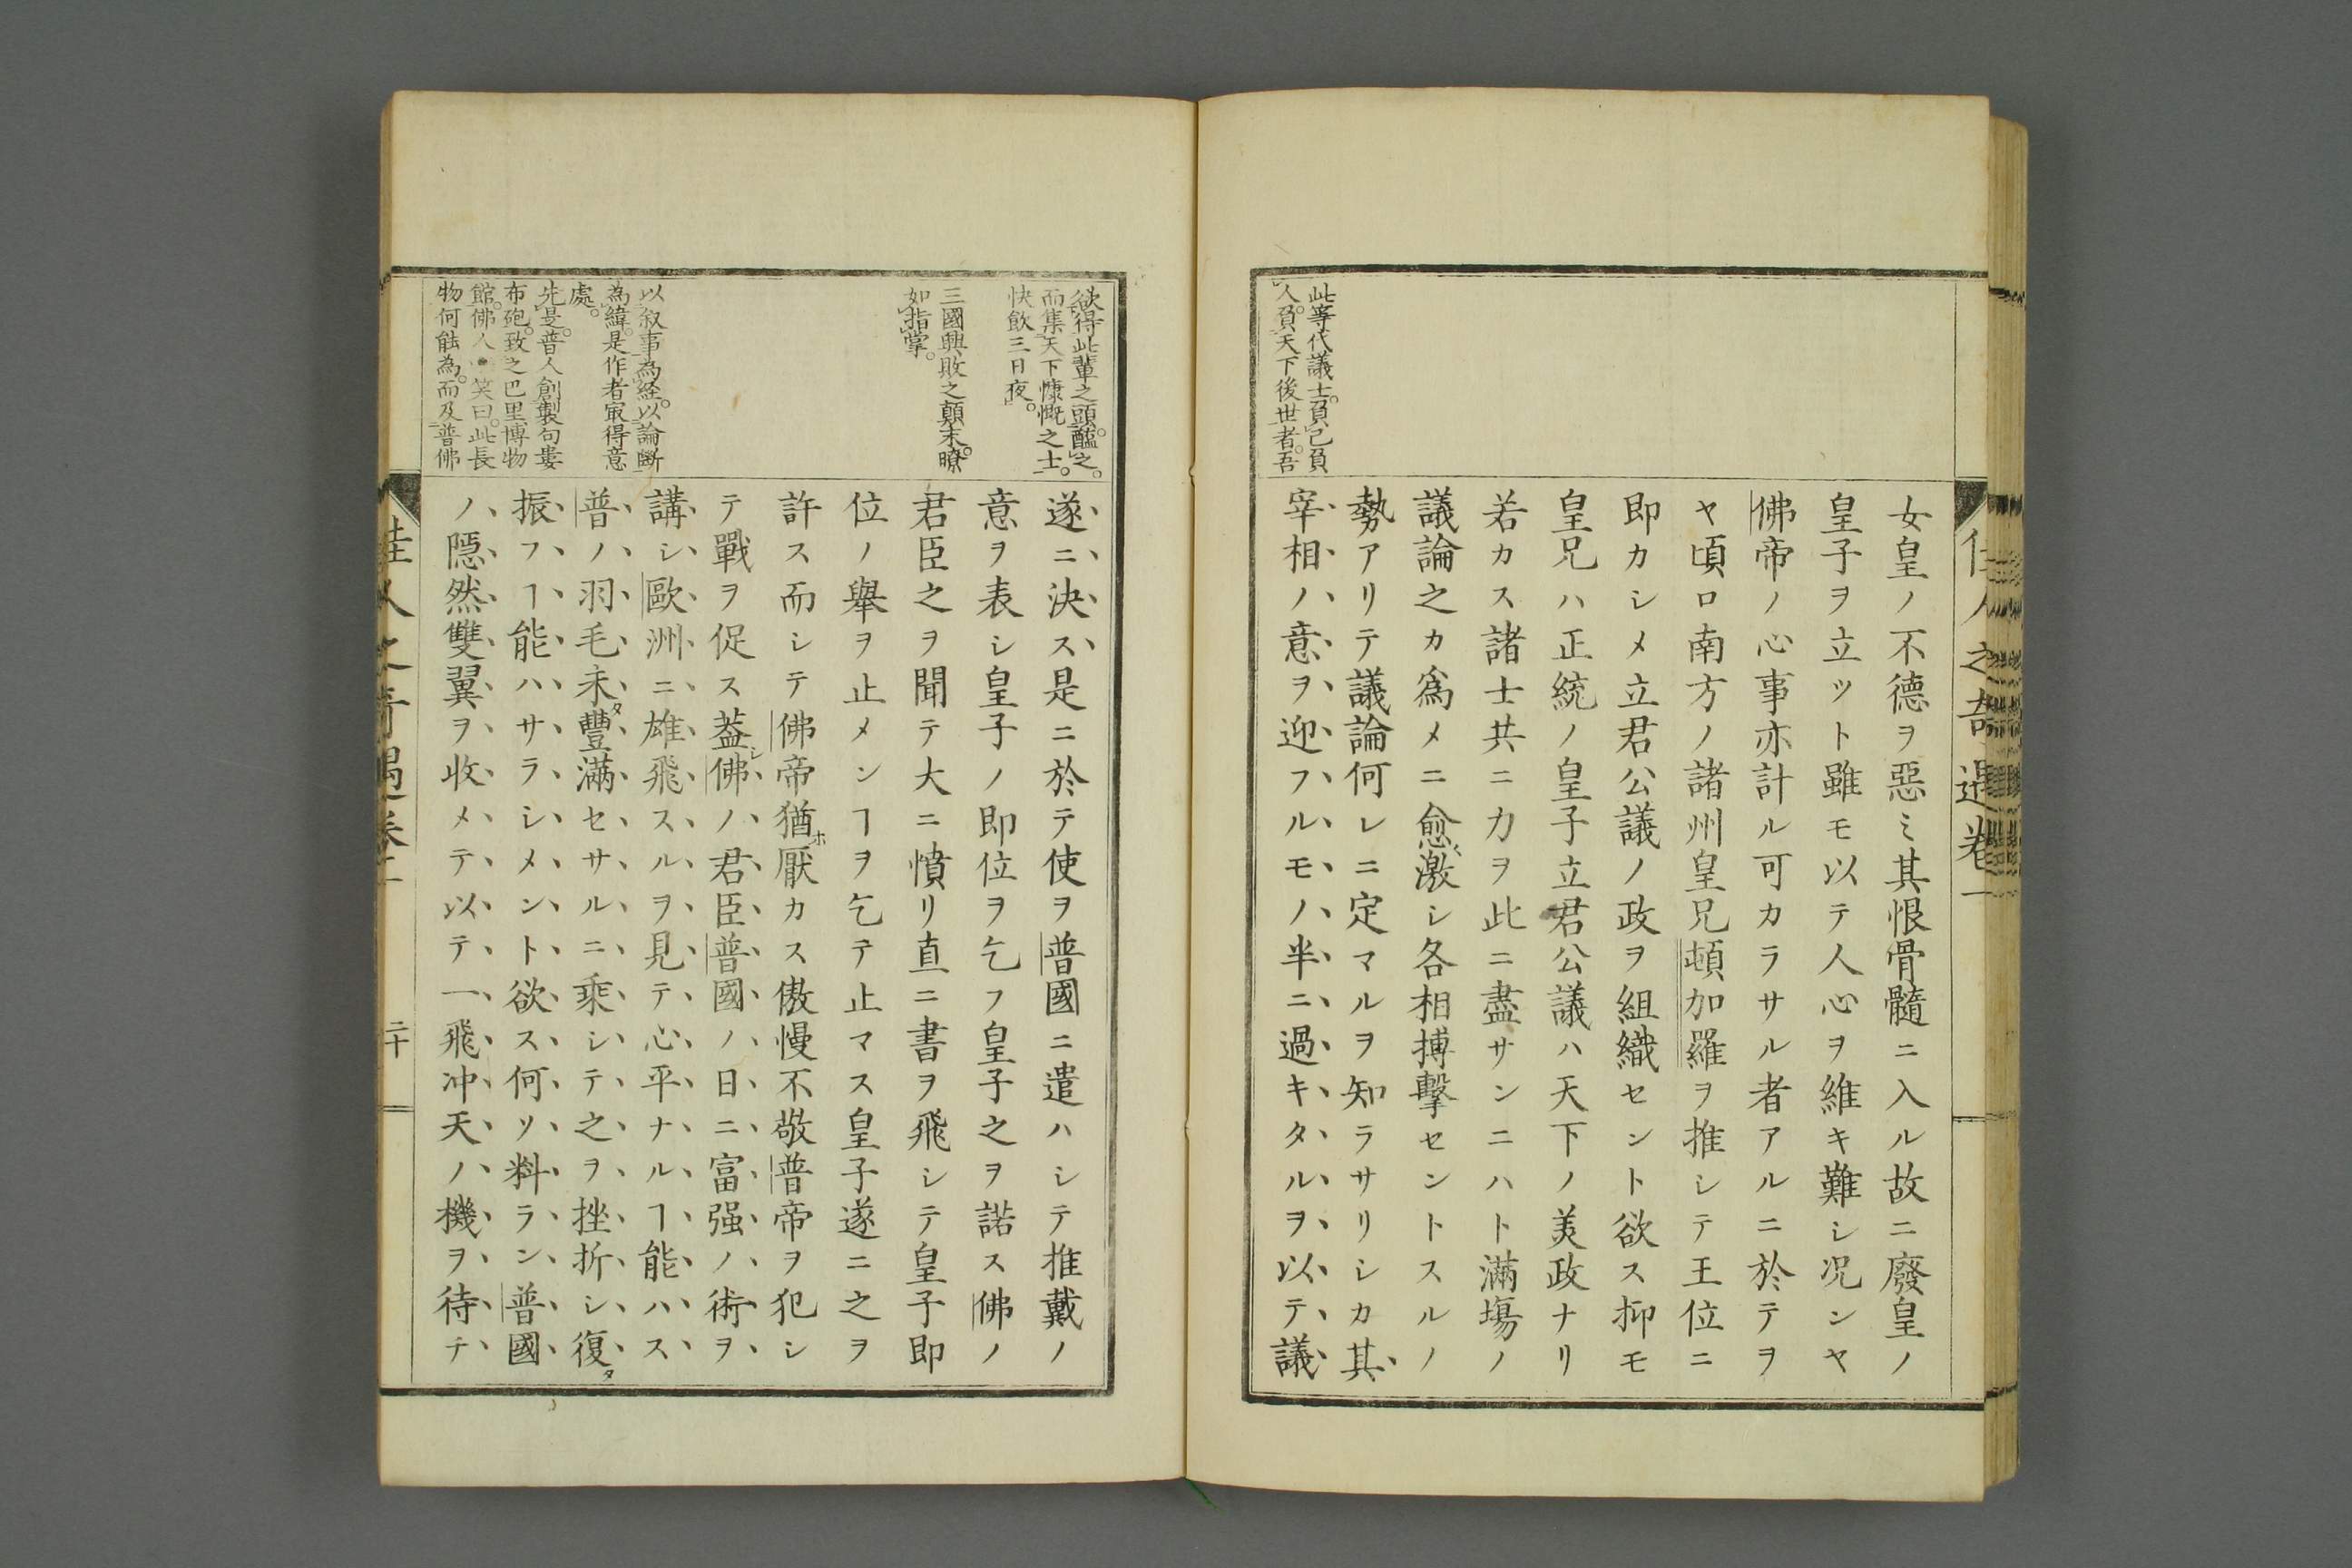 佳人之奇遇卷一
女皇ノ不德ヲ惡ミ其恨骨髓ニ入ル故ニ廢皇ノ
皇子ヲ立ツト雖モ以テ人心ヲ維キ難シ况ンヤ
佛帝ノ心事亦計ル可カラサル者アルニ於テヲ
ヤ頃ロ南方ノ諸州皇兄頓加羅ヲ推シテ王位ニ
即カシメ立君公議ノ政ヲ組織セント欲ス抑モ
皇兄ハ正統ノ皇子立君公議ハ天下ノ美政ナリ
若カス諸士共ニ力ヲ此ニ盡サンニハト滿場ノ
議論之カ爲メニ愈〻激シ各相搏擊セントスルノ
勢アリテ議論何レニ定マルヲ知ラサリシカ其
宰相ノ意ヲ迎フルモノ半ニ過キタルヲ以テ議
此等代議士。負己負
人。負天下後世者。吾
欲得此輩之頭。醢之。
而集天下慷慨之士。
快飲三日夜。
三國興敗之顛末。暸
如指掌。
以叙事為経。以論斷
為緯。是作者㝡得意
處。
先是。普人創製句婁
布砲。致之巴里博物
館。佛人笑曰。此長
物何能為。而及普佛
遂ニ決ス是ニ於テ使ヲ普國ニ遣ハシテ推戴ノ
意ヲ表シ皇子ノ即位ヲ乞フ皇子之ヲ諾ス佛ノ
君臣之ヲ聞テ大ニ憤リ直ニ書ヲ飛シテ皇子即
位ノ舉ヲ止メンヿヲ乞テ止マス皇子遂ニ之ヲ
許ス而シテ佛帝猶ホ厭カス傲慢不敬普帝ヲ犯シ
テ戰ヲ促ス蓋シ佛ノ君臣普國ノ日ニ富强ノ術ヲ
講シ歐洲ニ雄飛スルヲ見テ心平ナルヿ能ハス
普ノ羽毛未タ豐滿セサルニ乘シテ之ヲ挫折シ復タ
振フヿ能ハサラシメント欲ス何ソ料ラン普國
ノ隱然雙翼ヲ收メテ以テ一飛冲天ノ機ヲ待チ
佳人之奇遇卷一
二十